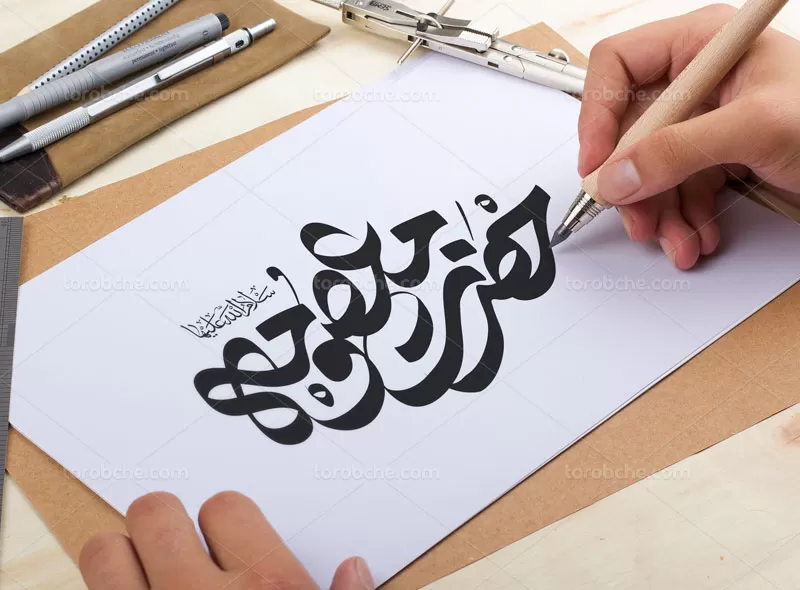 torobche.com torobche.com torobche.com
حضرت معصومه
سلام الله علیها
torobche.com torobche.com torobche.com
torobche.com torobche.com torobche.com